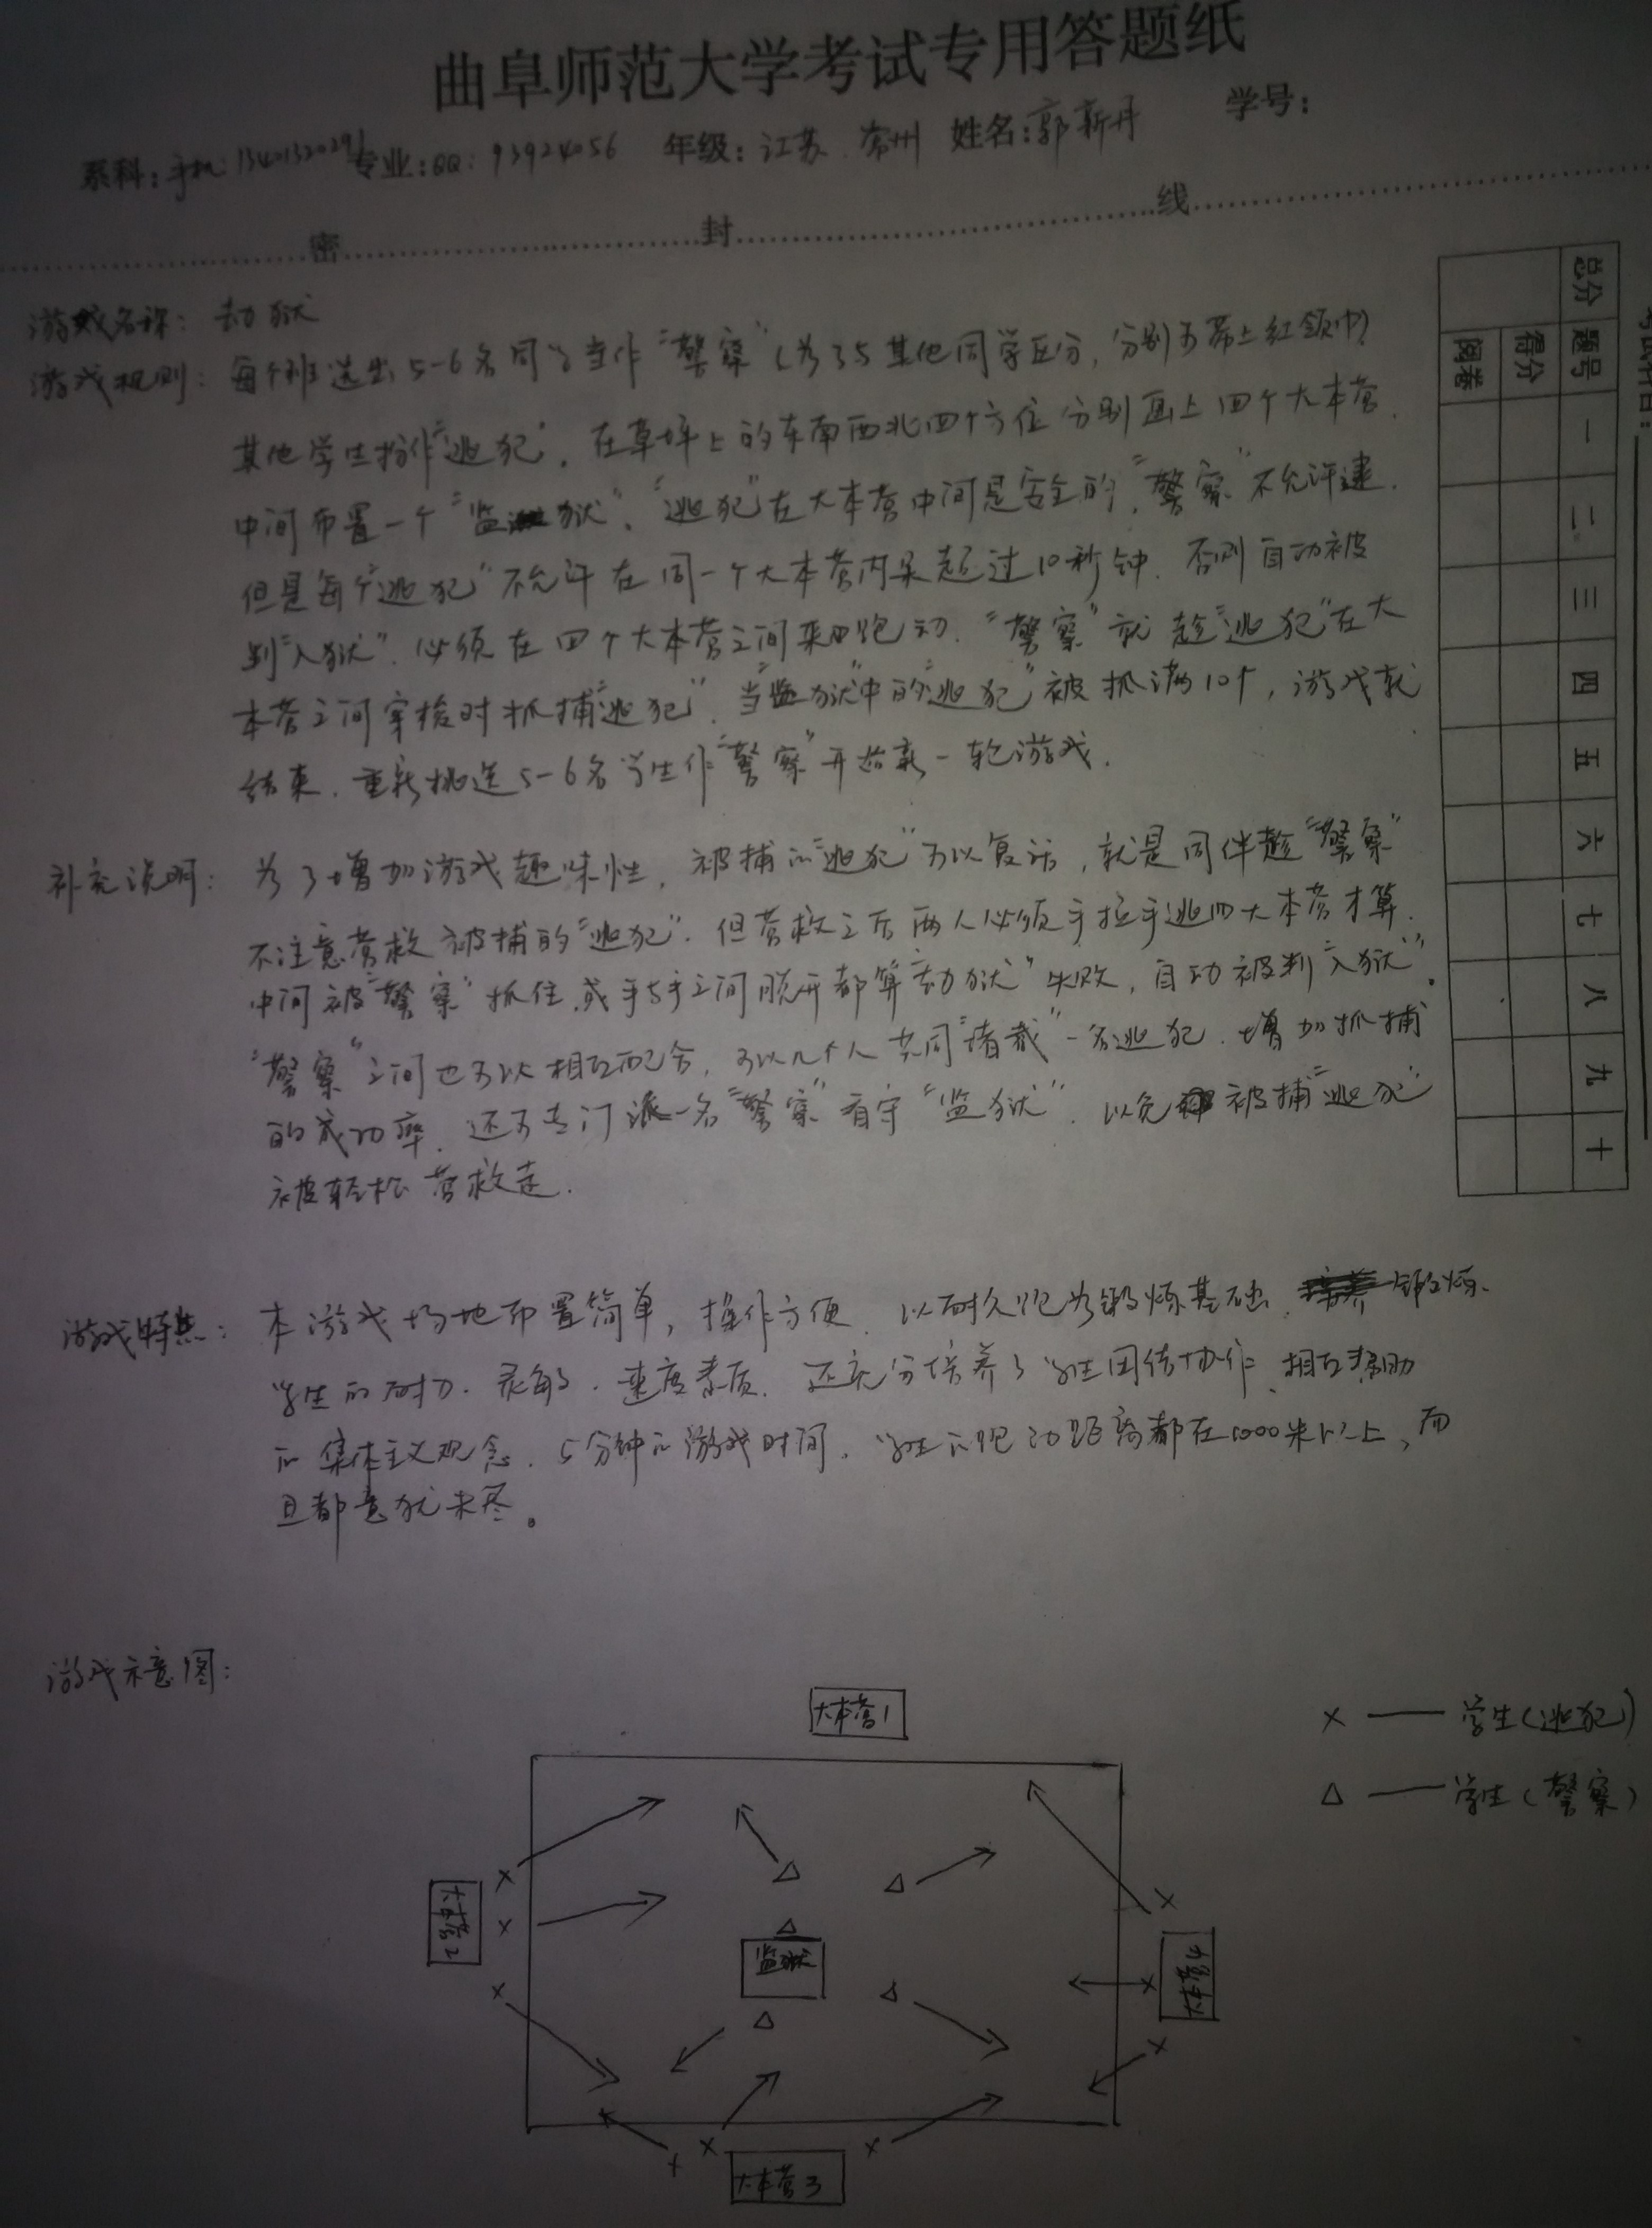 曲阜师范大学考试专用答题纸
系科：手机： 专业：QQ：93924056 年级：江苏.常州 姓名：郭新丹 学号：
密 封 线
游戏名称：劫狱
游戏规则：每个班选出5-6名同学当作“警察”（为了与其他同学区分，分别可带上红领巾）
其他学生扮作“逃犯”。在草坪上的东南西北四个方位分别画上四个大本营.
中间布置一个“监狱”.“逃犯”在大本营中间是安全的，“警察”不允许逮.
但是每个“逃犯”不允许在同一个大本营内呆超过10秒钟.否则自动被
判“入狱”.必须在四个大本营之间来回跑动.“警察”就趁“逃犯”在大
本营之间穿梭时抓捕“逃犯”.当“监狱”中的“逃犯”被抓满10个，游戏就
结束.重新挑选5-6名学生作“警察”开始新一轮游戏.
补充说明：为了增加游戏趣味性，被捕的“逃犯”可以复活，就是同伴趁“警察”
不注意营救被捕的“逃犯”.但营救之后两人必须手拉手逃回大本营才算.
中间被“警察”抓住.或手与手之间脱开都算“劫狱”失败，自动被判“入狱”。
“警察”之间也可以相互配合，可以几个人共同“堵截”一名逃犯.增加抓捕
的成功率.还可专门派一名“警察”看守“监狱”.以免被捕“逃犯”
被轻松营救走.
游戏特点：本游戏场地布置简单，操作方便.以耐久跑为锻炼基础.锻炼
学生的耐力.灵敏.速度素质.还充分培养了学生团结协作、相互帮助
的集体主义观念.5分钟的游戏时间.学生的跑动距离都在1000米以上，而
且都意犹未尽。
游戏示意图：
大本营1
× —— 学生（逃犯）
△ —— 学生（警察）
大本营2
监狱
大本营
大本营3
总分 题号 一 二 三 四 五 六 七 八 九 十
得分
阅卷